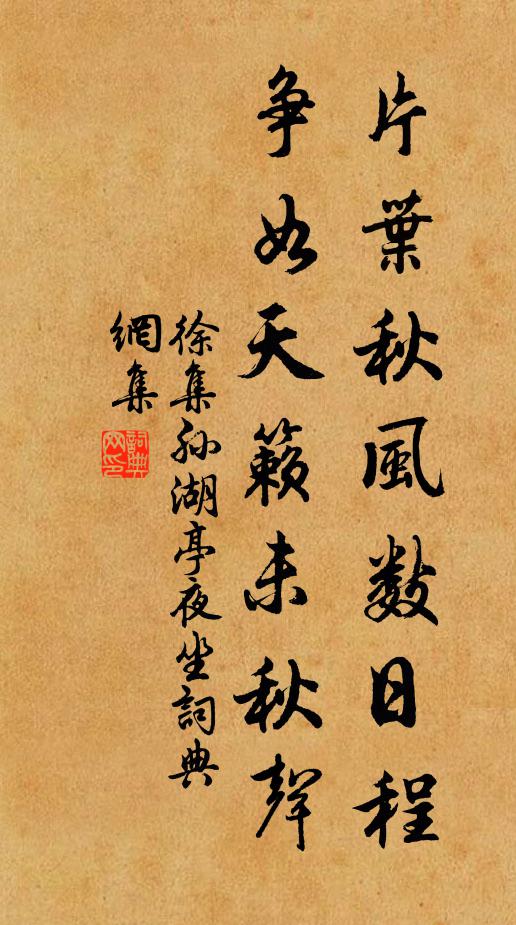 片葉秋風數日程
争如天籟未秋聲
徐集孙湖亭夜坐詞典
網集
詞典
网印